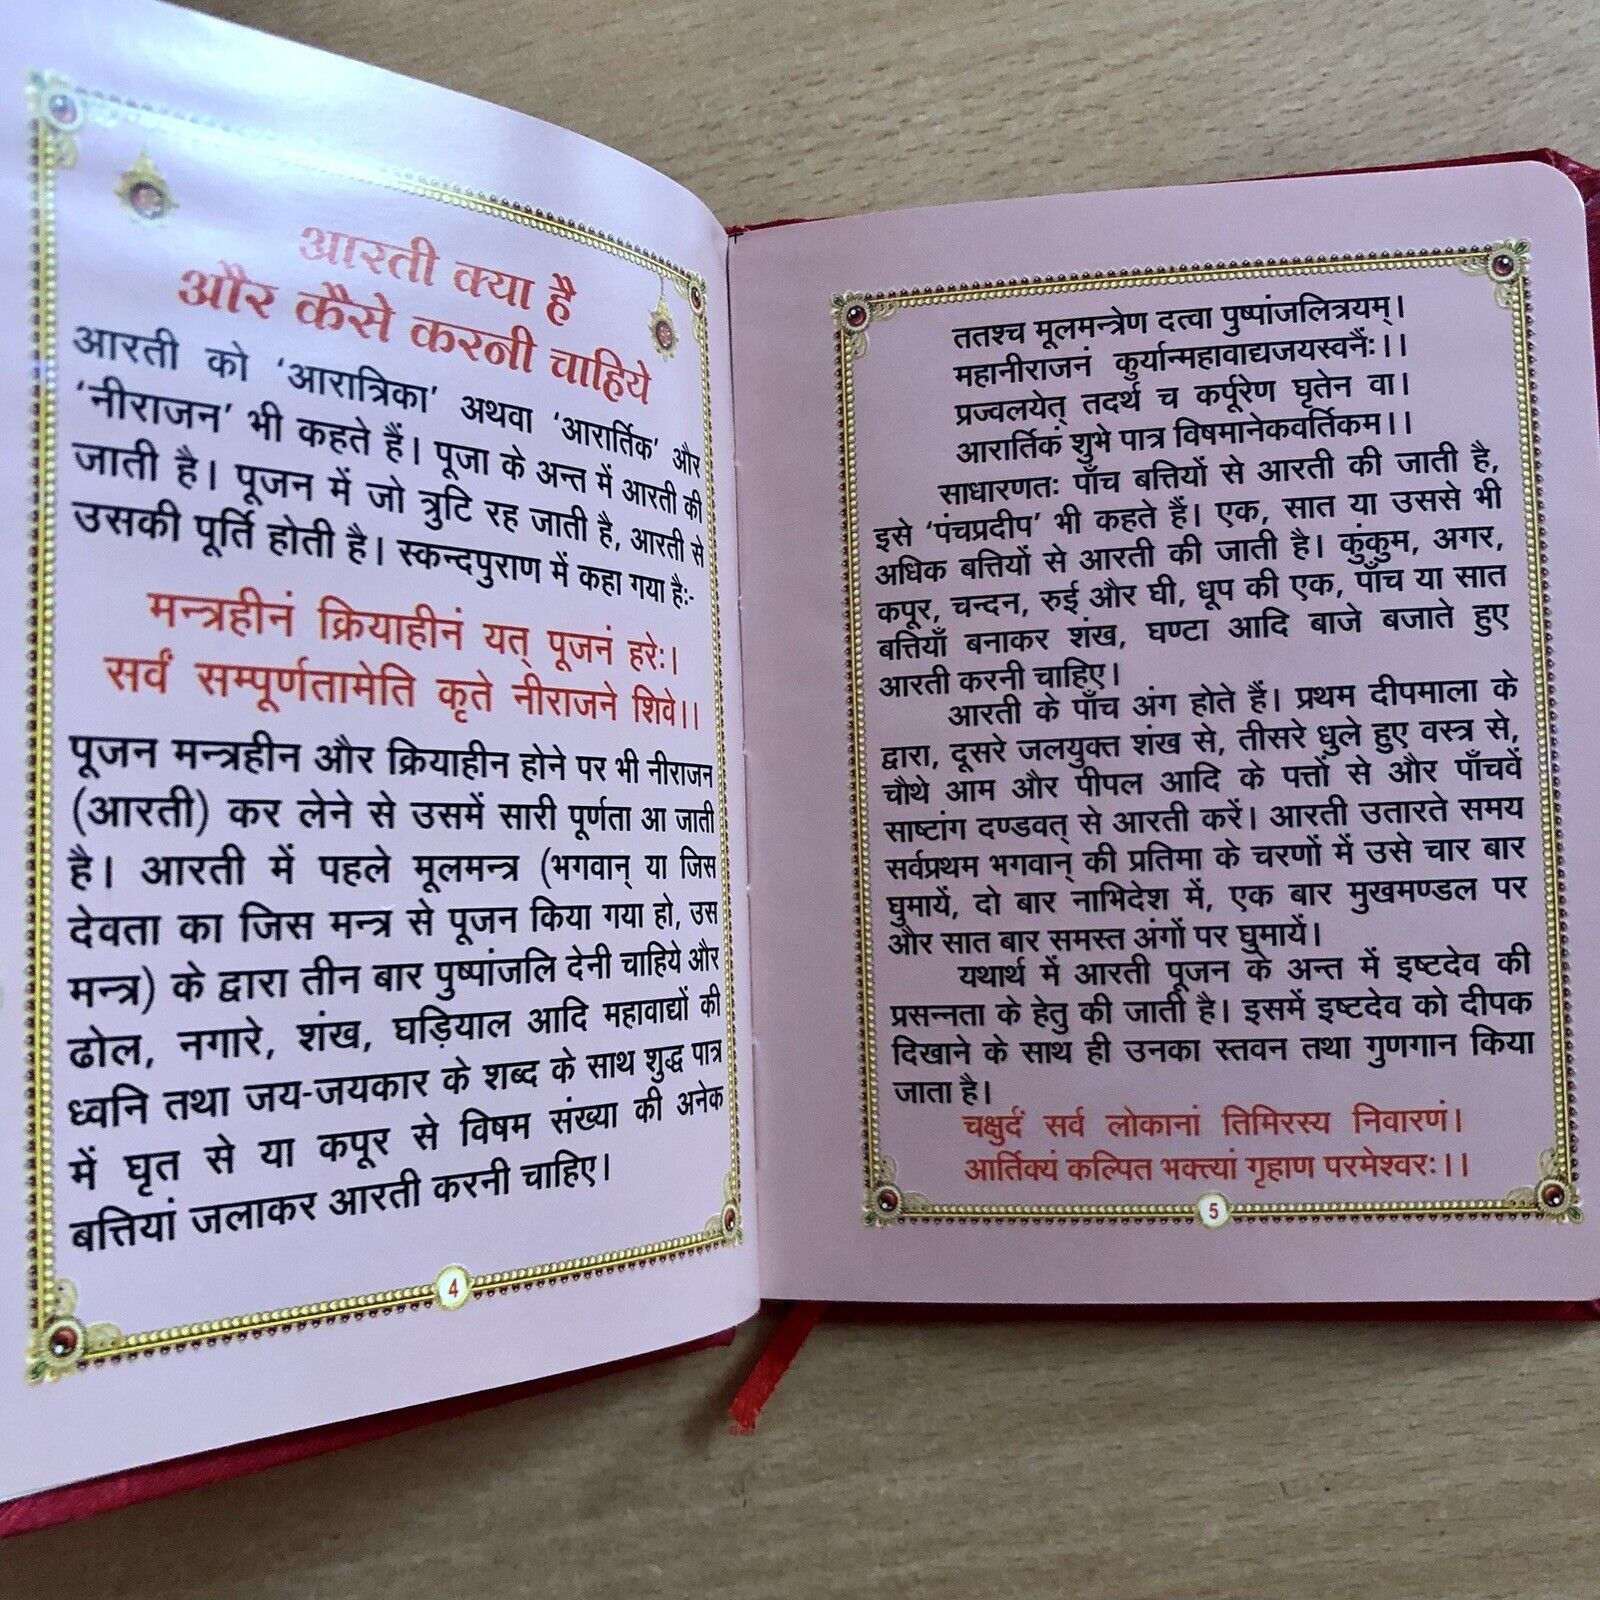 आरती क्या है
और कैसे करनी चाहिये
आरती को ‘आरात्रिका’ अथवा ‘आरार्तिक’ और
‘नीराजन’ भी कहते हैं। पूजा के अन्त में आरती की
जाती है। पूजन में जो त्रुटि रह जाती है, आरती से
उसकी पूर्ति होती है। स्कन्दपुराण में कहा गया है:-
मन्त्रहीनं क्रियाहीनं यत् पूजनं हरेः।
सर्वं सम्पूर्णतामेति कृते नीराजने शिवे।।
पूजन मन्त्रहीन और क्रियाहीन होने पर भी नीराजन
(आरती) कर लेने से उसमें सारी पूर्णता आ जाती
है। आरती में पहले मूलमन्त्र (भगवान् या जिस
देवता का जिस मन्त्र से पूजन किया गया हो, उस
मन्त्र) के द्वारा तीन बार पुष्पांजलि देनी चाहिये और
ढोल, नगारे, शंख, घड़ियाल आदि महावाद्यों की
ध्वनि तथा जय-जयकार के शब्द के साथ शुद्ध पात्र
में घृत से या कपूर से विषम संख्या की अनेक
बत्तियां जलाकर आरती करनी चाहिए।
4
ततश्च मूलमन्त्रेण दत्वा पुष्पांजलित्रयम्।
महानीराजनं कुर्यान्महावाद्यजयस्वनैंः।।
प्रज्वलयेत् तदर्थ च कर्पूरेण घृतेन वा।
आरार्तिकं शुभे पात्र विषमानेकवर्तिकम।।
साधारणतः पाँच बत्तियों से आरती की जाती है,
इसे ‘पंचप्रदीप’ भी कहते हैं। एक, सात या उससे भी
अधिक बत्तियों से आरती की जाती है। कुंकुम, अगर,
कपूर, चन्दन, रुई और घी, धूप की एक, पाँच या सात
बत्तियाँ बनाकर शंख, घण्टा आदि बाजे बजाते हुए
आरती करनी चाहिए।
आरती के पाँच अंग होते हैं। प्रथम दीपमाला के
द्वारा, दूसरे जलयुक्त शंख से, तीसरे धुले हुए वस्त्र से,
चौथे आम और पीपल आदि के पत्तों से और पाँचवें
साष्टांग दण्डवत् से आरती करें। आरती उतारते समय
सर्वप्रथम भगवान् की प्रतिमा के चरणों में उसे चार बार
घुमायें, दो बार नाभिदेश में, एक बार मुखमण्डल पर
और सात बार समस्त अंगों पर घुमायें।
यथार्थ में आरती पूजन के अन्त में इष्टदेव की
प्रसन्नता के हेतु की जाती है। इसमें इष्टदेव को दीपक
दिखाने के साथ ही उनका स्तवन तथा गुणगान किया
जाता है।
चक्षुर्दं सर्व लोकानां तिमिरस्य निवारणं।
आर्तिक्यं कल्पित भक्त्यां गृहाण परमेश्वरः।।
5